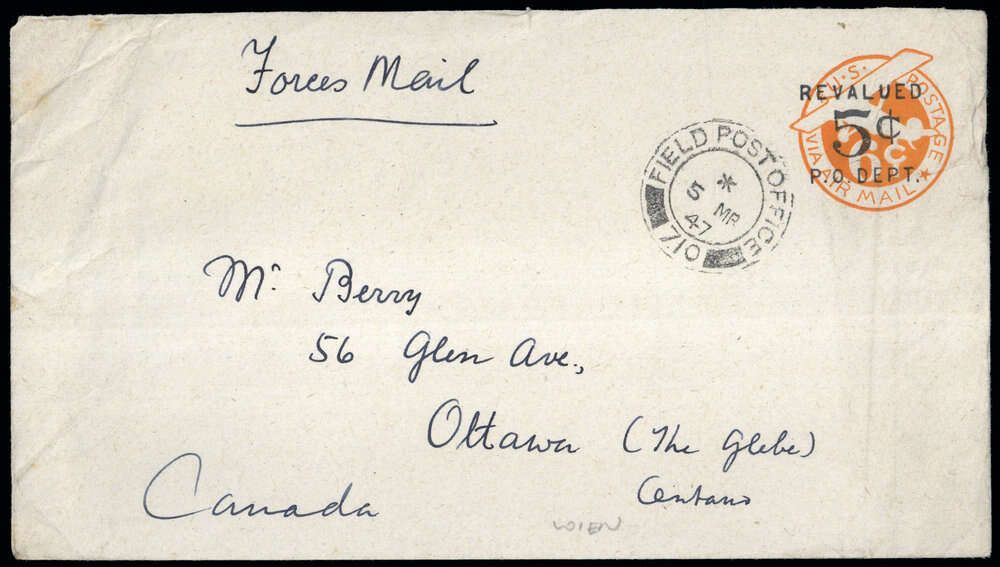 Forces Mail
U.S. POSTAGE
REVALUED
5¢
6¢
P.O. DEPT.
VIA AIR MAIL
FIELD POST OFFICE
*
5 MR
47
710
Mr. Berry
56 Glen Ave.,
Ottawa (The Glebe)
Ontario
Canada
WIEN